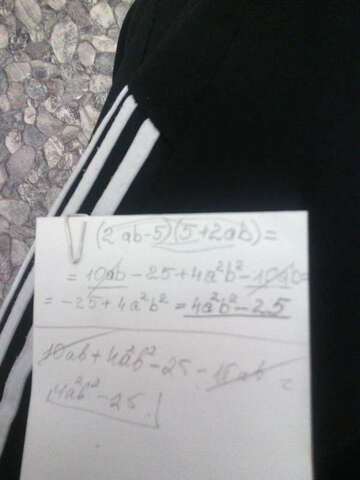 (2ab-5)(5+2ab)=
=10ab-25+4a²b²-10ab=
=-25+4a²b²=4a²b²-25
10ab+4a²b²-25-10ab=
4a²b²-25